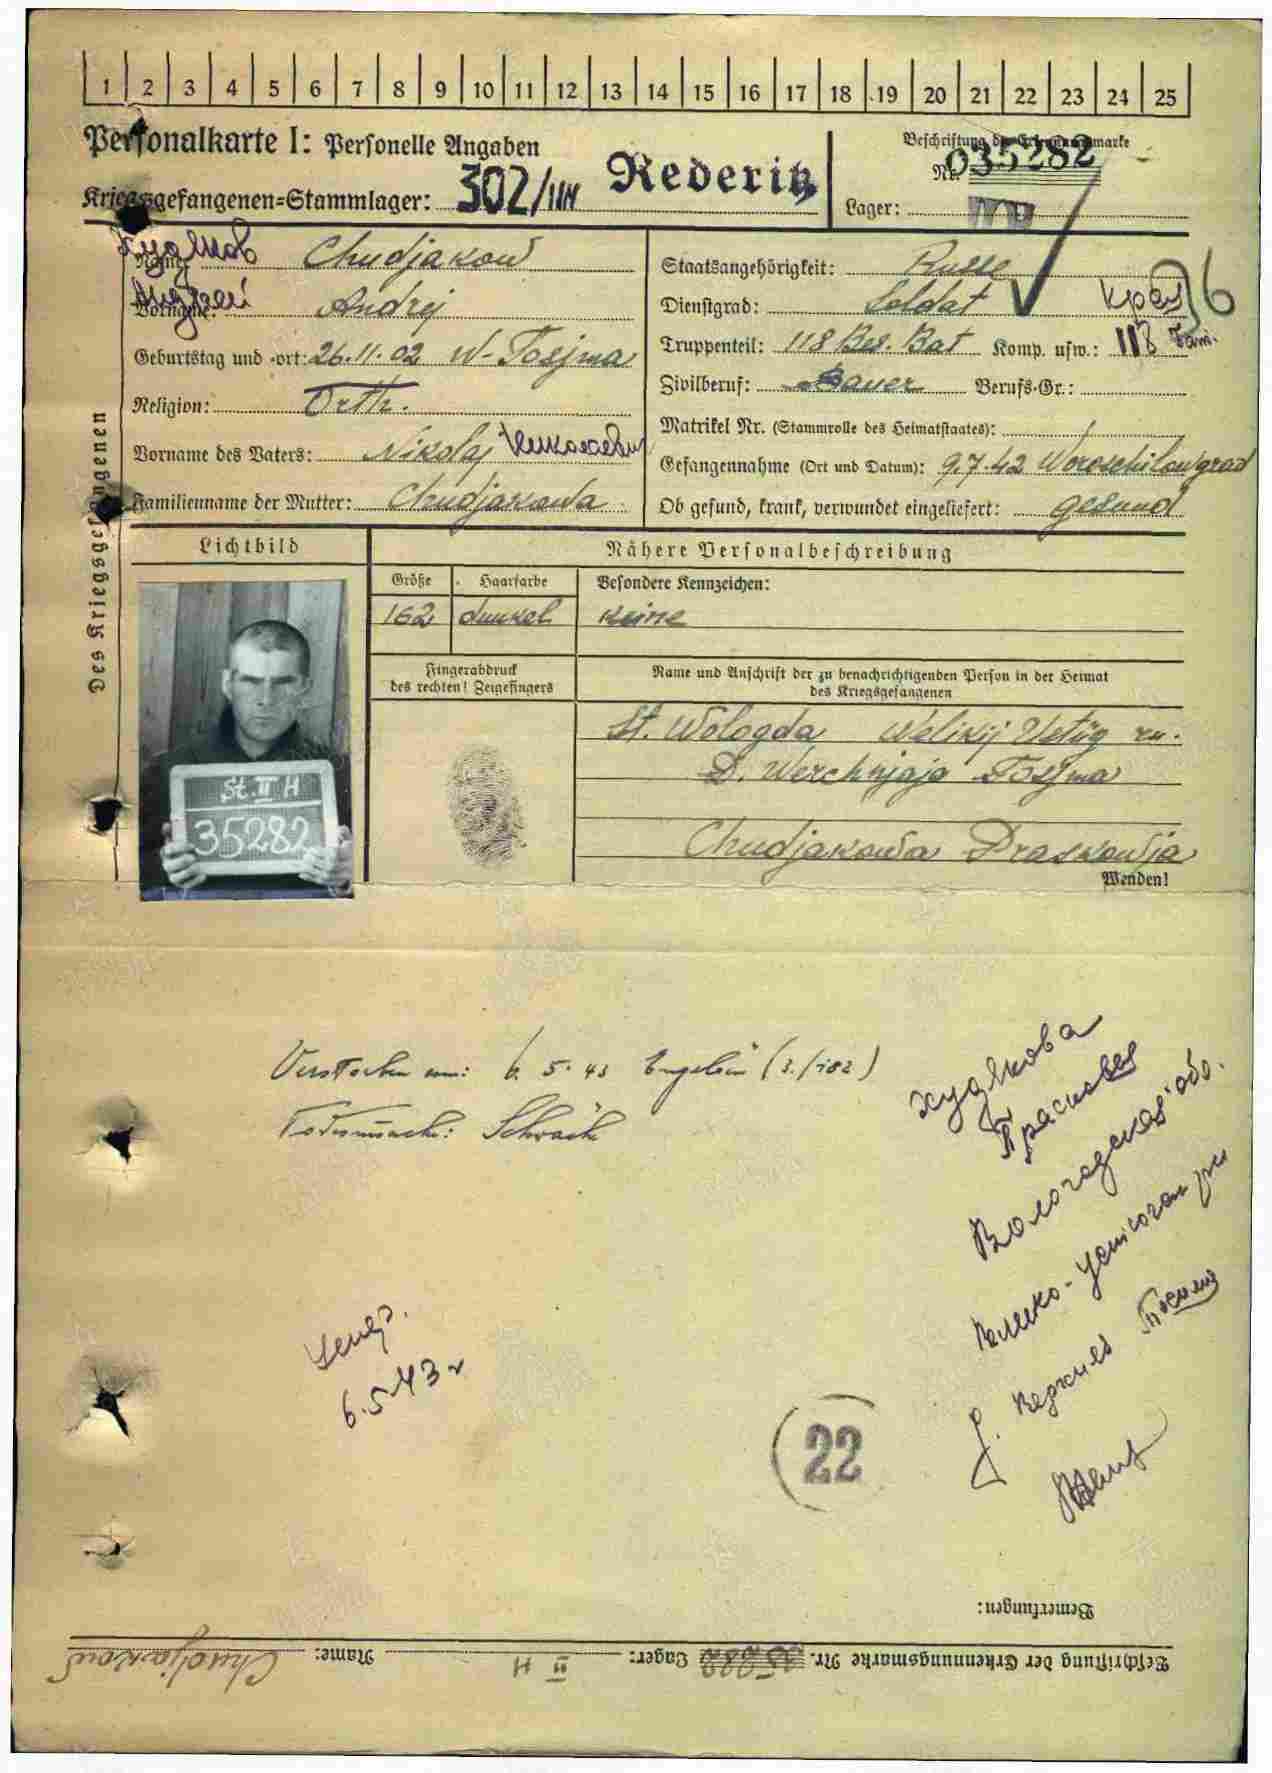 1 2 3 4 5 6 7 8 9 10 11 12 13 14 15 16 17 18 19 20 21 22 23 24 25
Personalkarte I: Personelle Angaben
Kriegsgefangenen=Stammlager: 302/IIH Rederitz
Beschriftung der Erkennungsmarke
Nr. 035282
Lager:
Des Kriegsgefangenen
Худяков
Name: Chudjakow
Андрей
Vorname: Andrej
Geburtstag und -ort: 26.11.02 W-Tosjma
Religion: Orth.
Vorname des Vaters: Nikolaj Николаевич
Familienname der Mutter: Chudjakowa
Staatsangehörigkeit: Russe
Dienstgrad: Soldat
Truppenteil: 118 Bes. Bat Komp. usw.: 118
Zivilberuf: Bauer Berufs-Gr.:
Matrikel Nr. (Stammrolle des Heimatstaates): /
Gefangennahme (Ort und Datum): 9.7.42 Woroschilowgrad
Ob gesund, krank, verwundet eingeliefert: gesund
Lichtbild
Nähere Personalbeschreibung
Größe Haarfarbe Besondere Kennzeichen:
162 dunkel keine
Fingerabdruck
des rechten! Zeigefingers
Name und Anschrift der zu benachrichtigenden Person in der Heimat
des Kriegsgefangenen
St. Wologda Welikij Ustüg
D. Werchnjaja Tosjma
Chudjakowa Praskowja
Wenden!
St. II H
35282
Verstorben am: 6. 5. 43
Todesursache: Schwäche
Худякова
Прасковья
Вологодская обл.
Велико-Устюгский
д. Верхняя Тосьма
6.5.43 г
22
Bemerkungen:
Beschriftung der Erkennungsmarke Nr. 35282 Lager: II H Name: Chudjakow